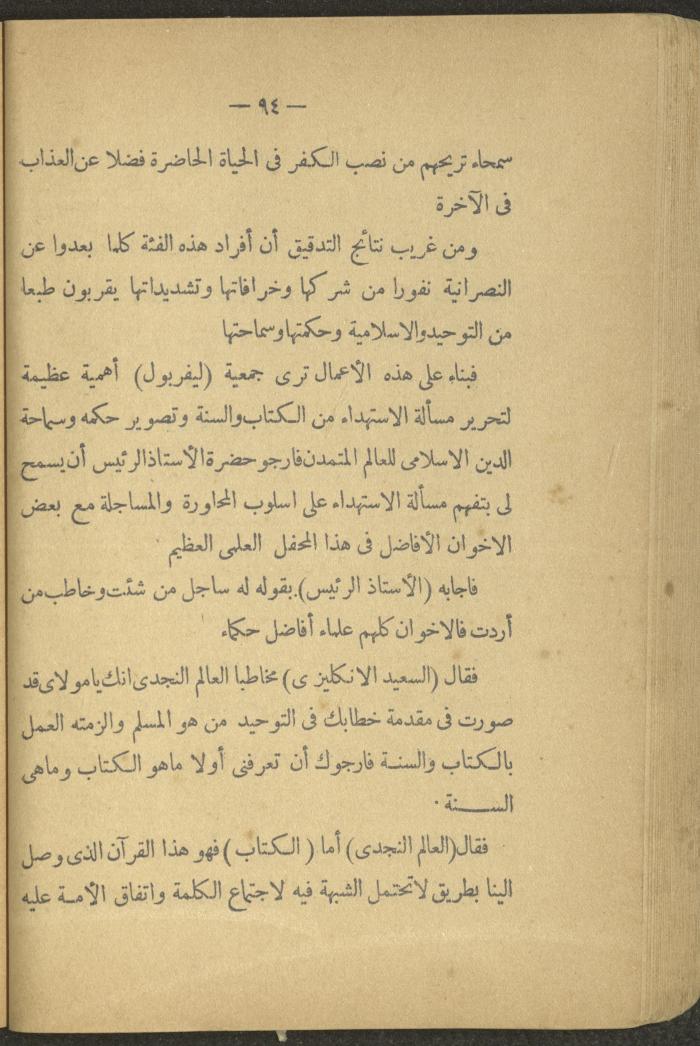 — ٩٤ —
سمحاء تريحهم من نصب الكفر فى الحياة الحاضرة فضلا عن العذاب
فى الآخرة
ومن غريب نتائج التدقيق أن أفراد هذه الفئة كلما بعدوا عن
النصرانية نفورا من شركها وخرافاتها وتشديداتها يقربون طبعا
من التوحيد والاسلامية وحكمتها وسماحتها
فبناء على هذه الأعمال ترى جمعية (ليفربول) أهمية عظيمة
لتحرير مسألة الاستهداء من الكتاب والسنة وتصوير حكمه وسماحة
الدين الاسلامى للعالم المتمدن فارجو حضرة الأستاذ الرئيس أن يسمح
لى بتفهم مسألة الاستهداء على اسلوب المحاورة والمساجلة مع بعض
الاخوان الأفاضل فى هذا المحفل العلمى العظيم
فاجابه (الأستاذ الرئيس) بقوله له ساجل من شئت وخاطب من
أردت فالاخوان كلهم علماء أفاضل حكماء
فقال (السعيد الانكليزى) مخاطبا العالم النجدى انك يامولاى قد
صورت فى مقدمة خطابك فى التوحيد من هو المسلم والزمته العمل
بالكتاب والسنة فارجوك أن تعرفنى أولا ماهو الكتاب وماهى
السنة ·
فقال (العالم النجدى) أما (الكتاب) فهو هذا القرآن الذى وصل
الينا بطريق لاتحتمل الشبهة فيه لاجتماع الكلمة واتفاق الأمة عليه